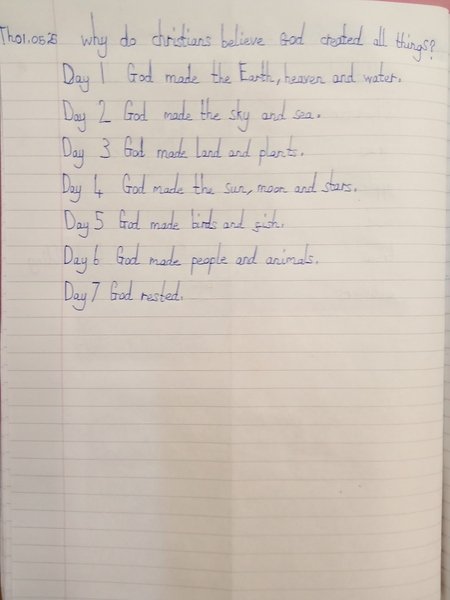 Th01.05.25 why do christians believe God created all things?
Day 1 God made the Earth, heaven and water.
Day 2 God made the sky and sea.
Day 3 God made land and plants.
Day 4 God made the sun, moon and stars.
Day 5 God made birds and fish.
Day 6 God made people and animals.
Day 7 God rested.